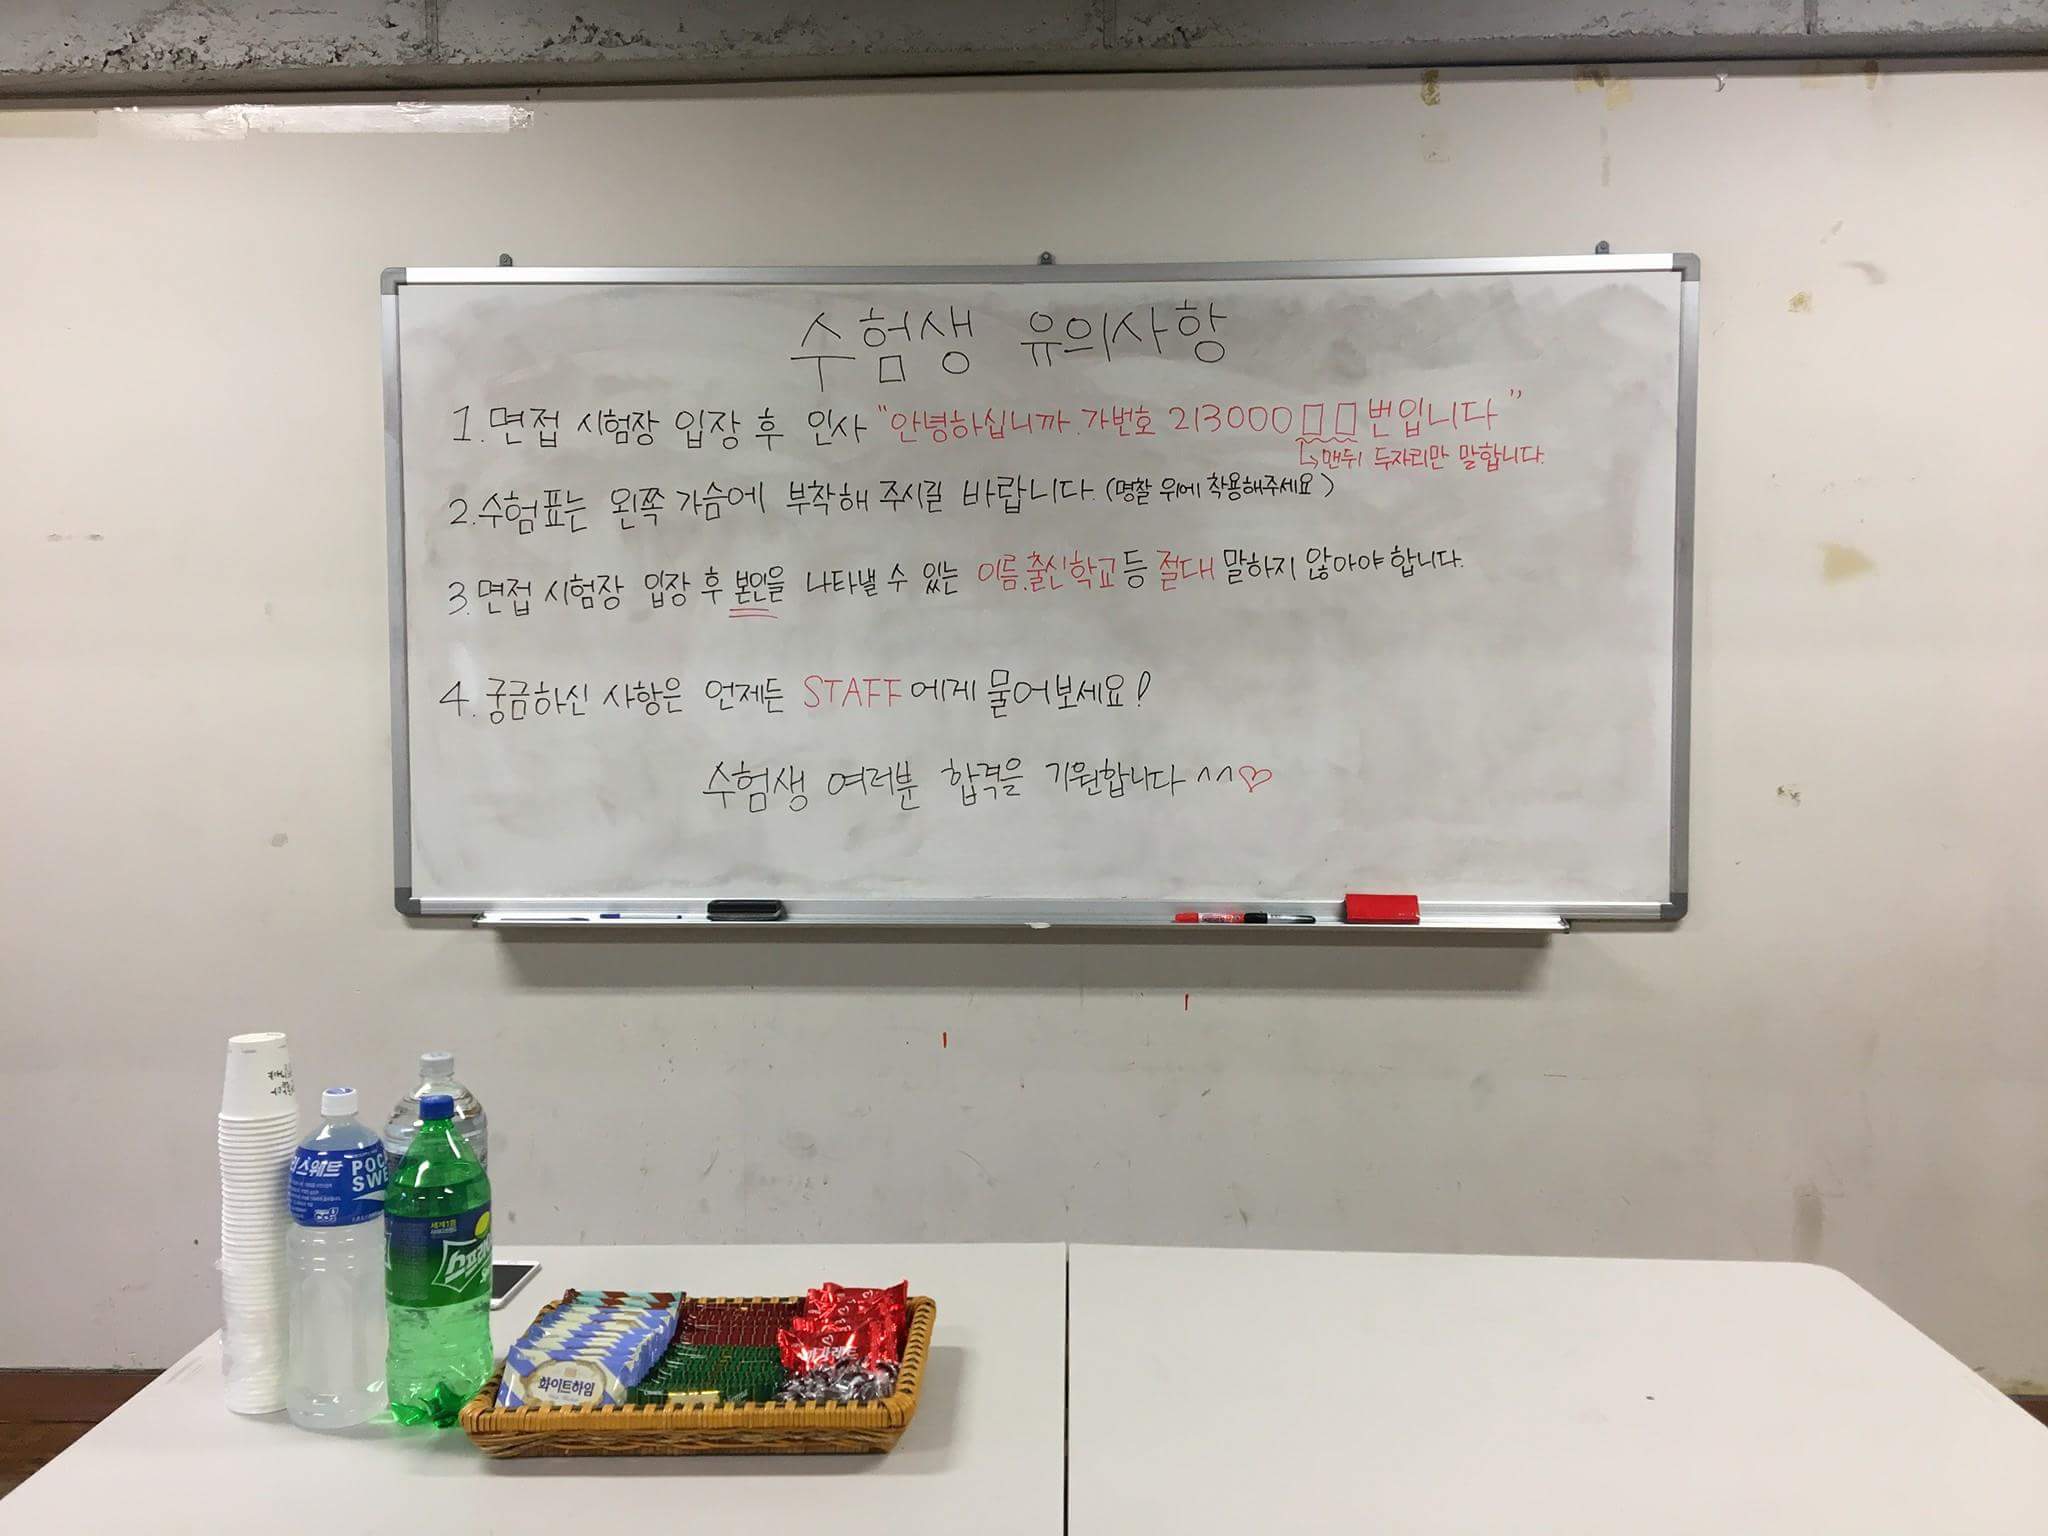 수험생 유의사항
1. 면접 시험장 입장 후 인사 "안녕하십니까. 가번호 213000□□번입니다"
↳맨뒤 두자리만 말합니다.
2. 수험표는 왼쪽 가슴에 부착해 주시길 바랍니다. (명찰 위에 착용해주세요)
3. 면접 시험장 입장 후 본인을 나타낼 수 있는 이름.출신학교 등 절대 말하지 않아야 합니다.
4. 궁금하신 사항은 언제든 STAFF에게 물어보세요!
수험생 여러분 합격을 기원합니다 ^^♡
스웨트
POC
SWE
세계1등
스프라
화이트하임